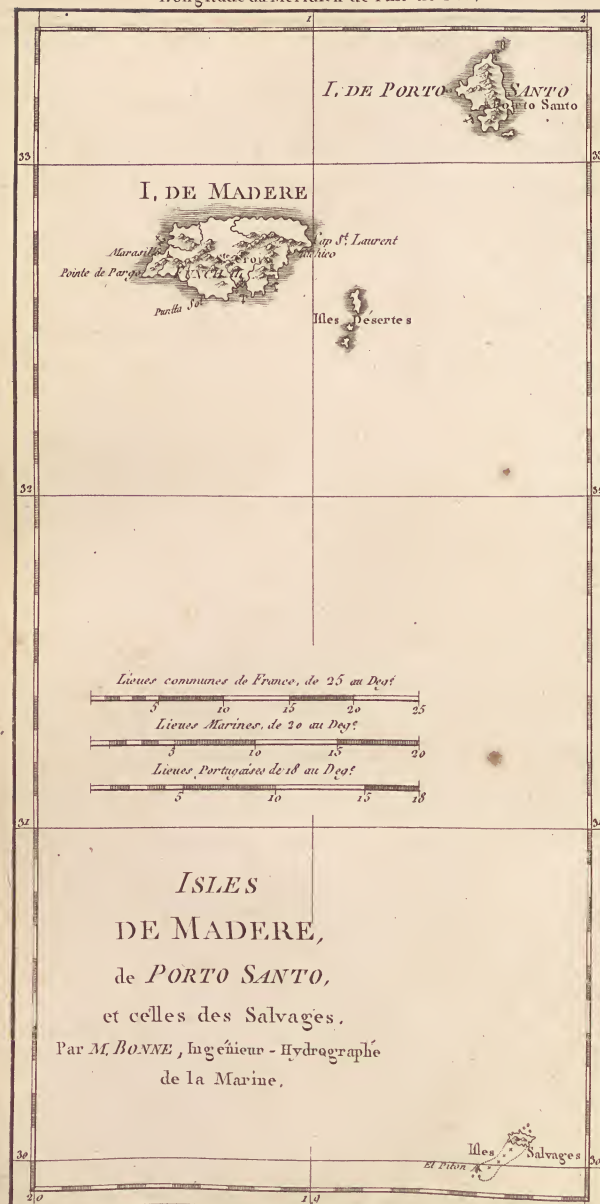 1 2
I. DE PORTO SANTO
Porto Santo
33 33
I. DE MADERE
Cap St. Laurent
Pointe de Pargo
FUNCHAL
Isles Désertes
32 32
Lieues communes de France, de 25 au Degé.
5 10 15 20 25
Lieues Marines, de 20 au Degé.
5 10 15 20
Lieues Portugaises de 18 au Degé.
5 10 15 18
31 31
ISLES
DE MADERE,
de PORTO SANTO,
et celles des Salvages.
Par M. BONNE, Ingénieur - Hydrographe
de la Marine.
Isles Salvages
El Piton
30 30
20 19